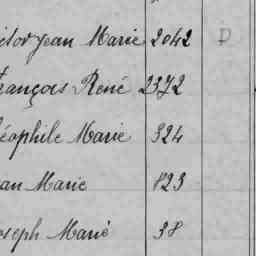 ictor Jean Marie 2042 D
rançois René 2372
éophile Marie 324
an Marie 823
oseph Marie 38